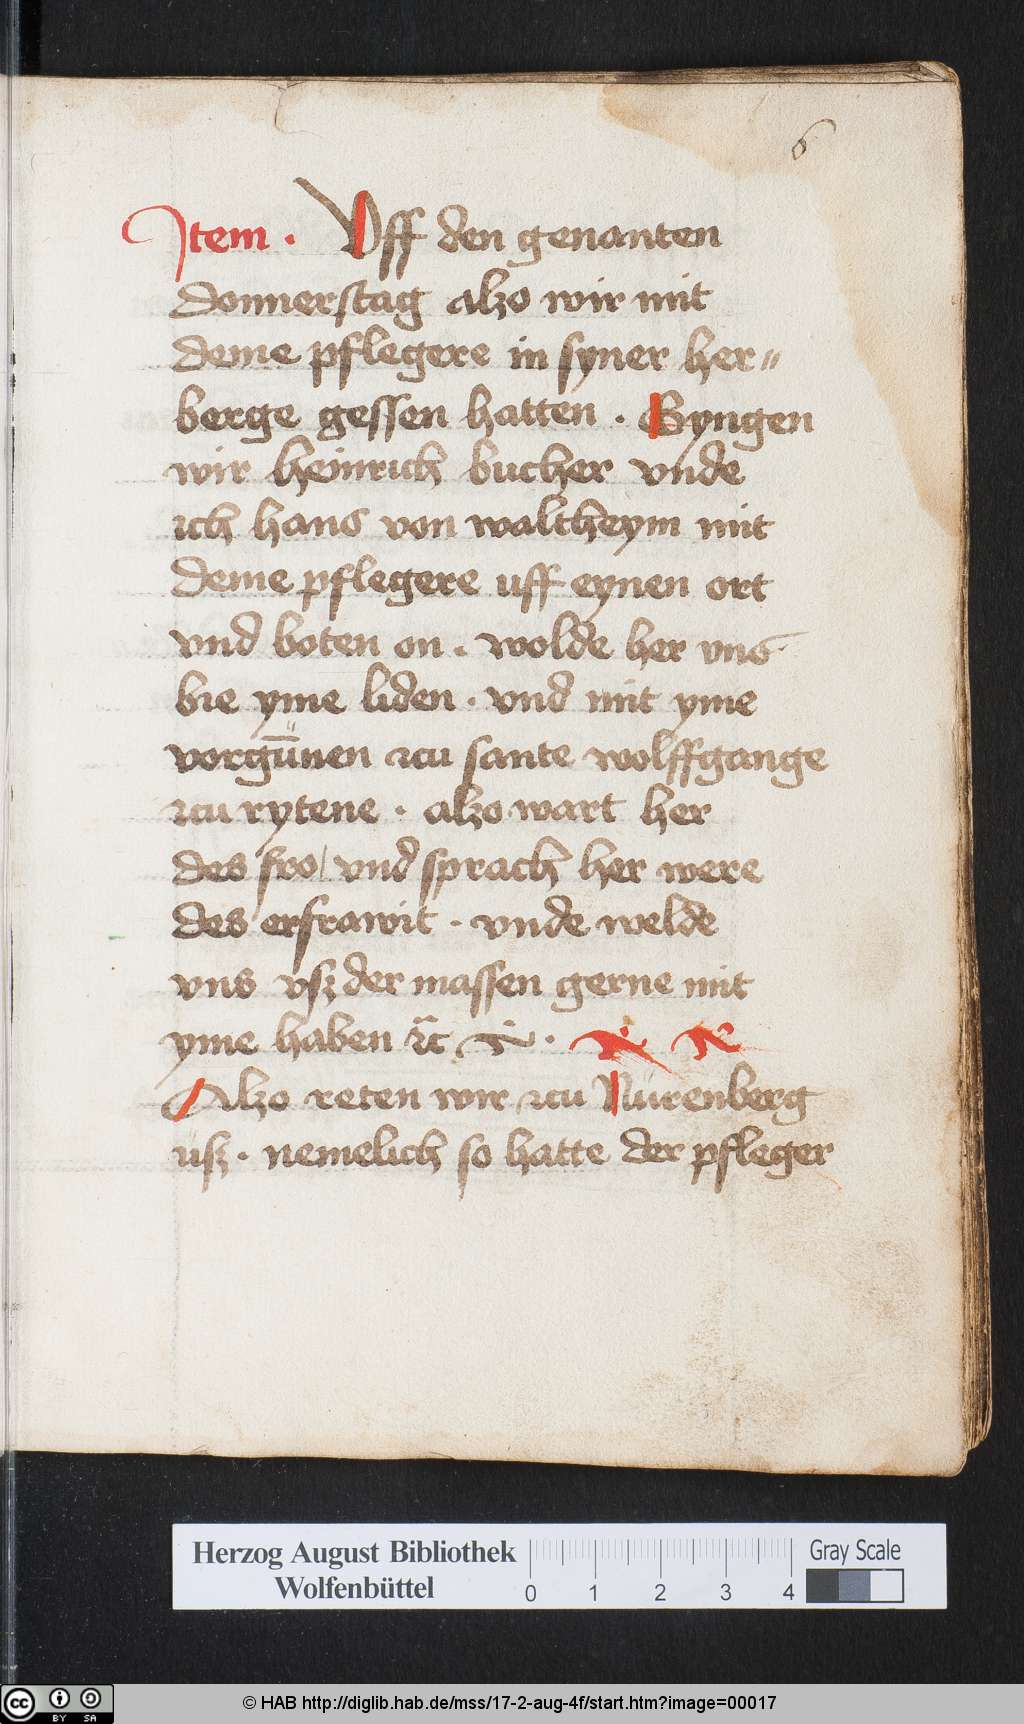 6
Item · Uff den genanten
donnerstag alzo wir mit
deme pflegere in syner her⸗
berge gessen hatten · Gyngen
wir heinrich bucher vnde
ich hans von waltheym mit
deme pflegere uff eynen ort
vnd boten on · wolde her vns
bie yme liden · vnd mit yme
vorgūnen zcu sante wolffgange
zcu rytene · alzo wart her
des fro / vnd sprach her were
des erfrawit · vnde welde
vns vsz der massen gerne mit
yme haben
Alzo reten wir zcu Nürenberg
üsz · nemelich so hatte der pfleger
Herzog August Bibliothek
Wolfenbüttel
0 1 2 3 4
Gray Scale
cc BY SA
© HAB http://diglib.hab.de/mss/17-2-aug-4f/start.htm?image=00017